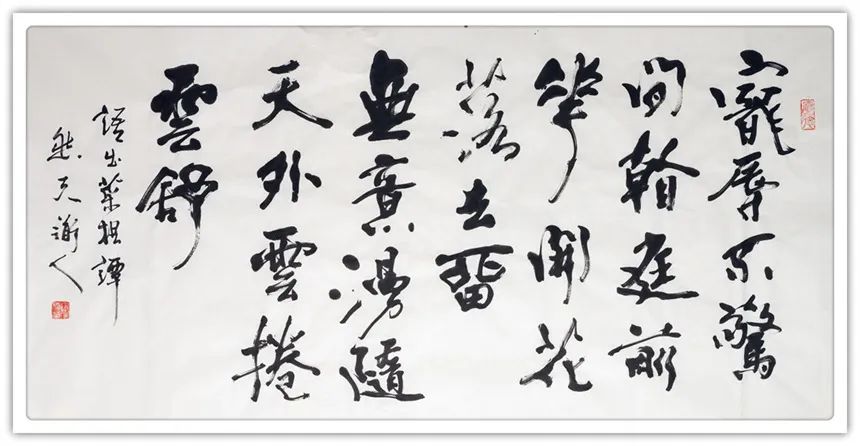 寵辱不驚
間看庭前
華開花
落去留
無意漫隨
天外雲捲
雲舒
語出菜根譚
人